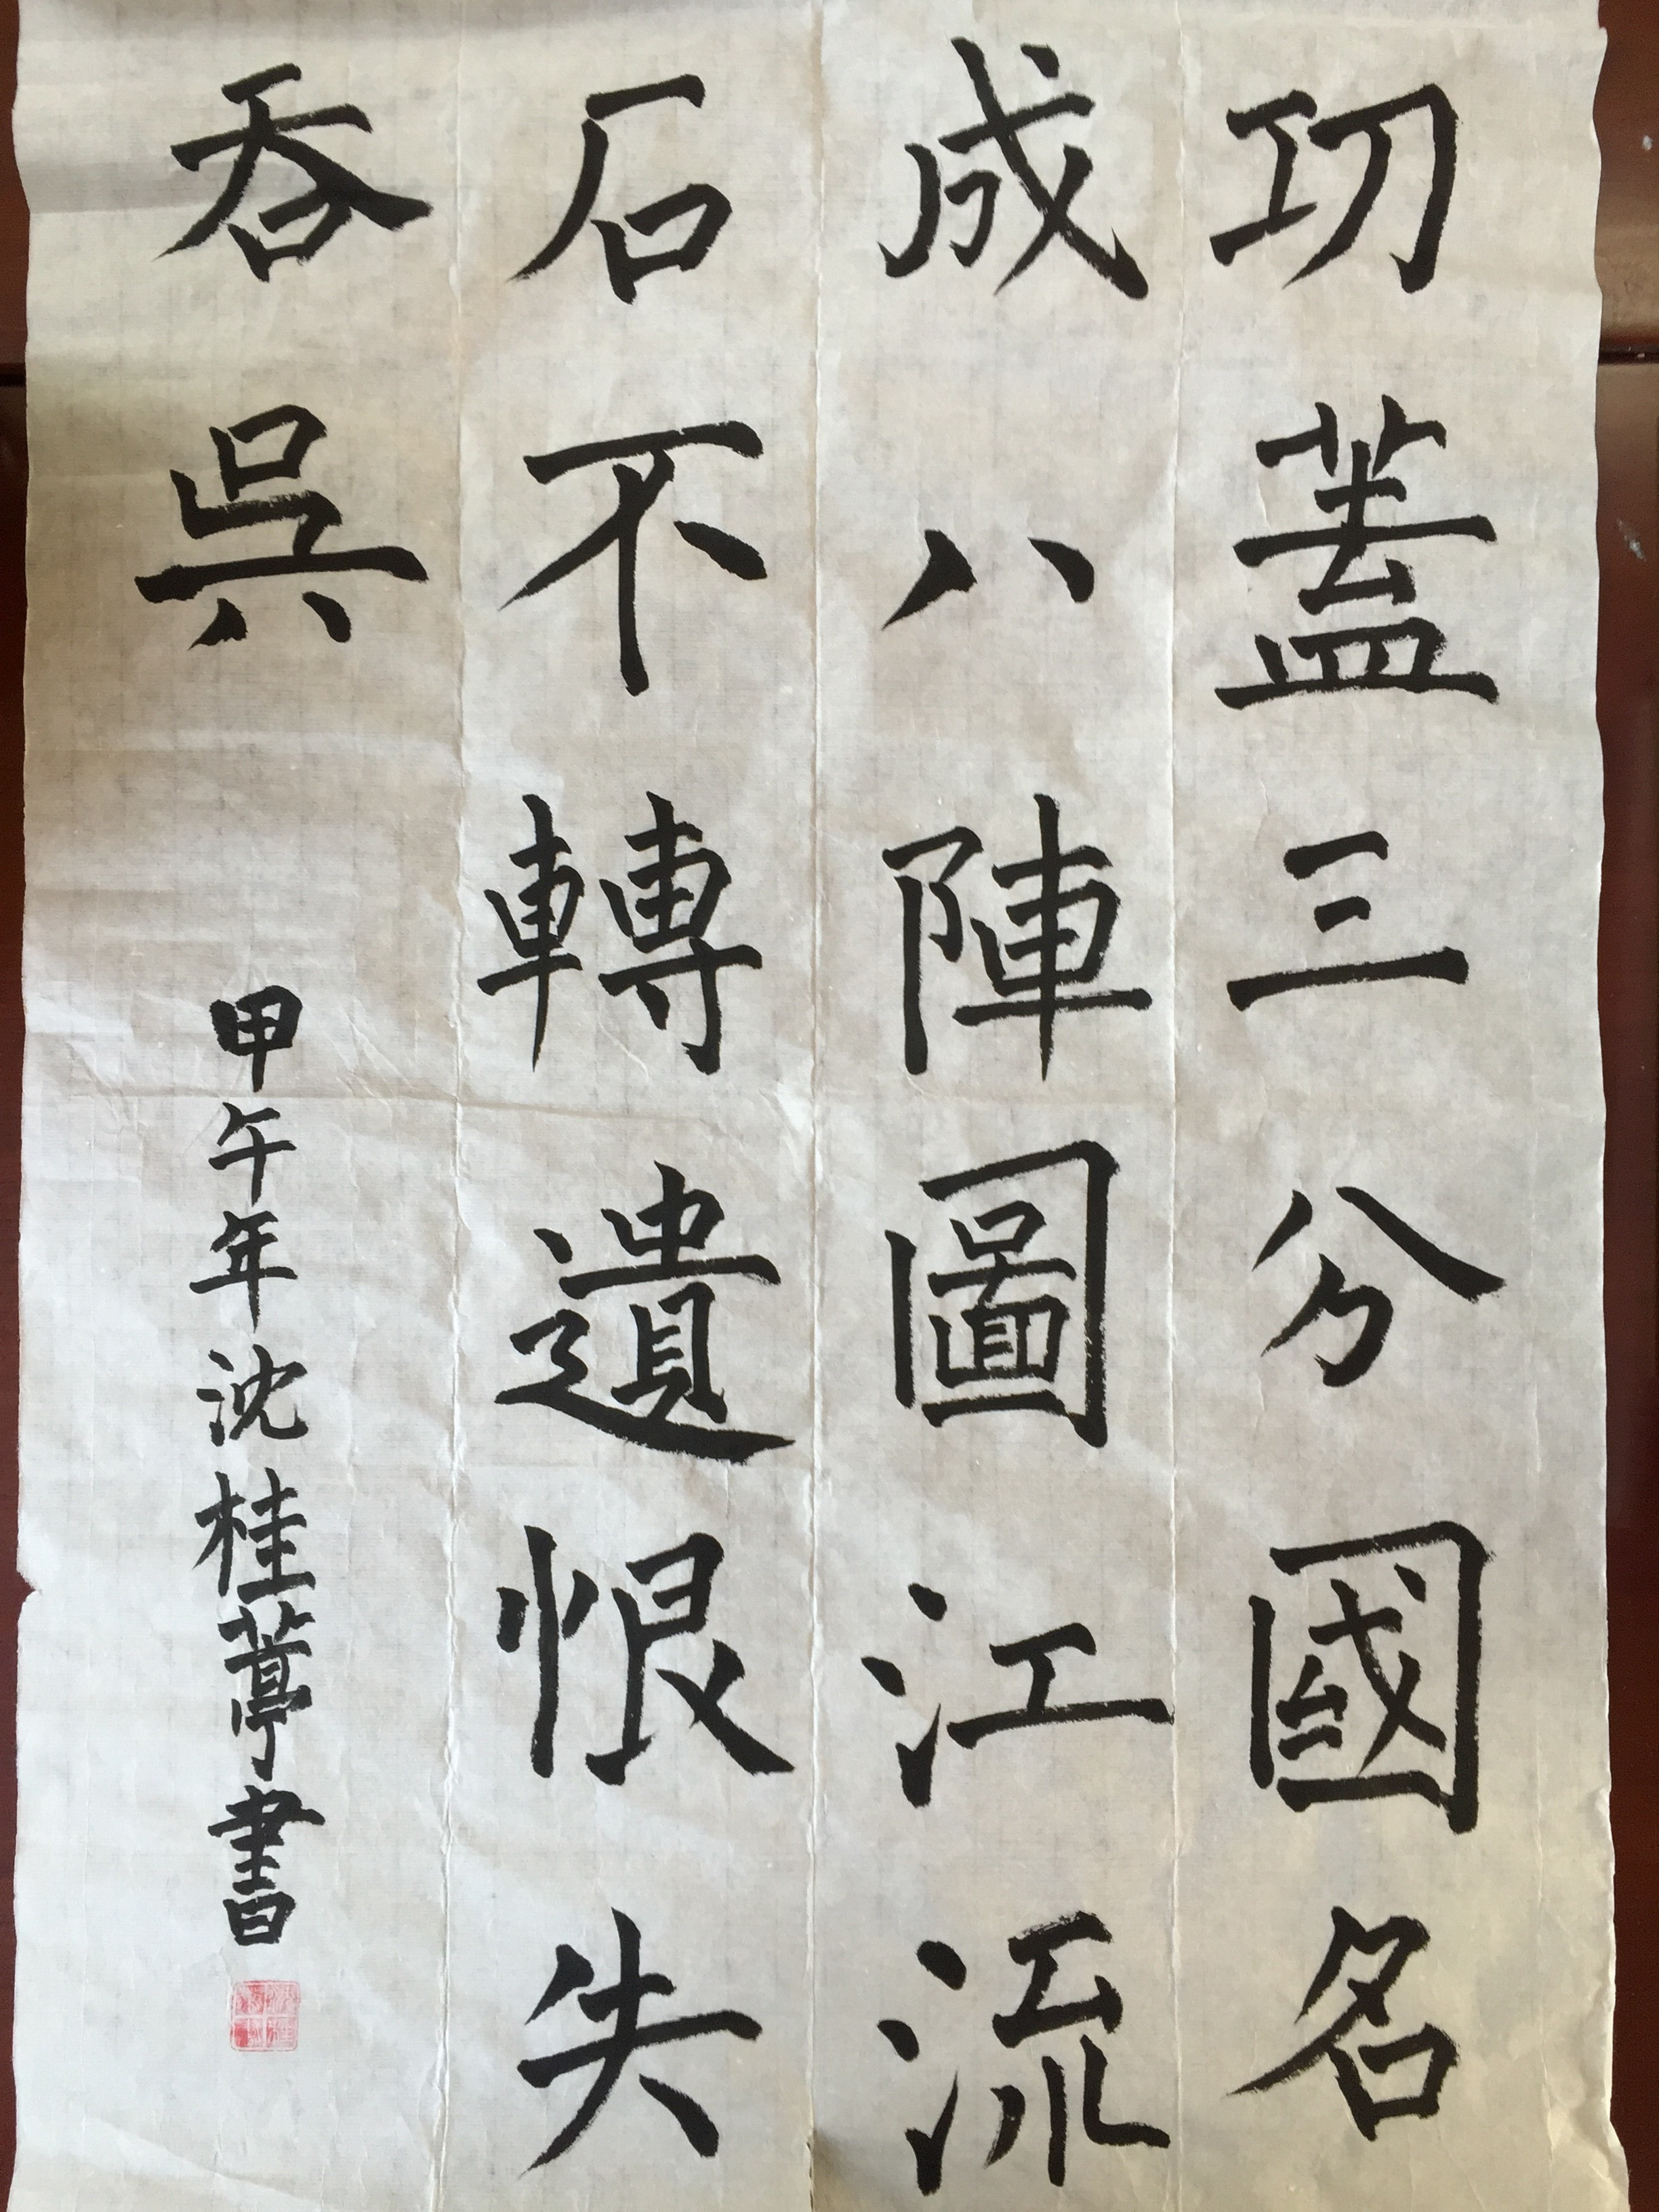 功蓋三分國名
成八陣圖江流
石不轉遺恨失
吞吳
甲午年沈桂葶書